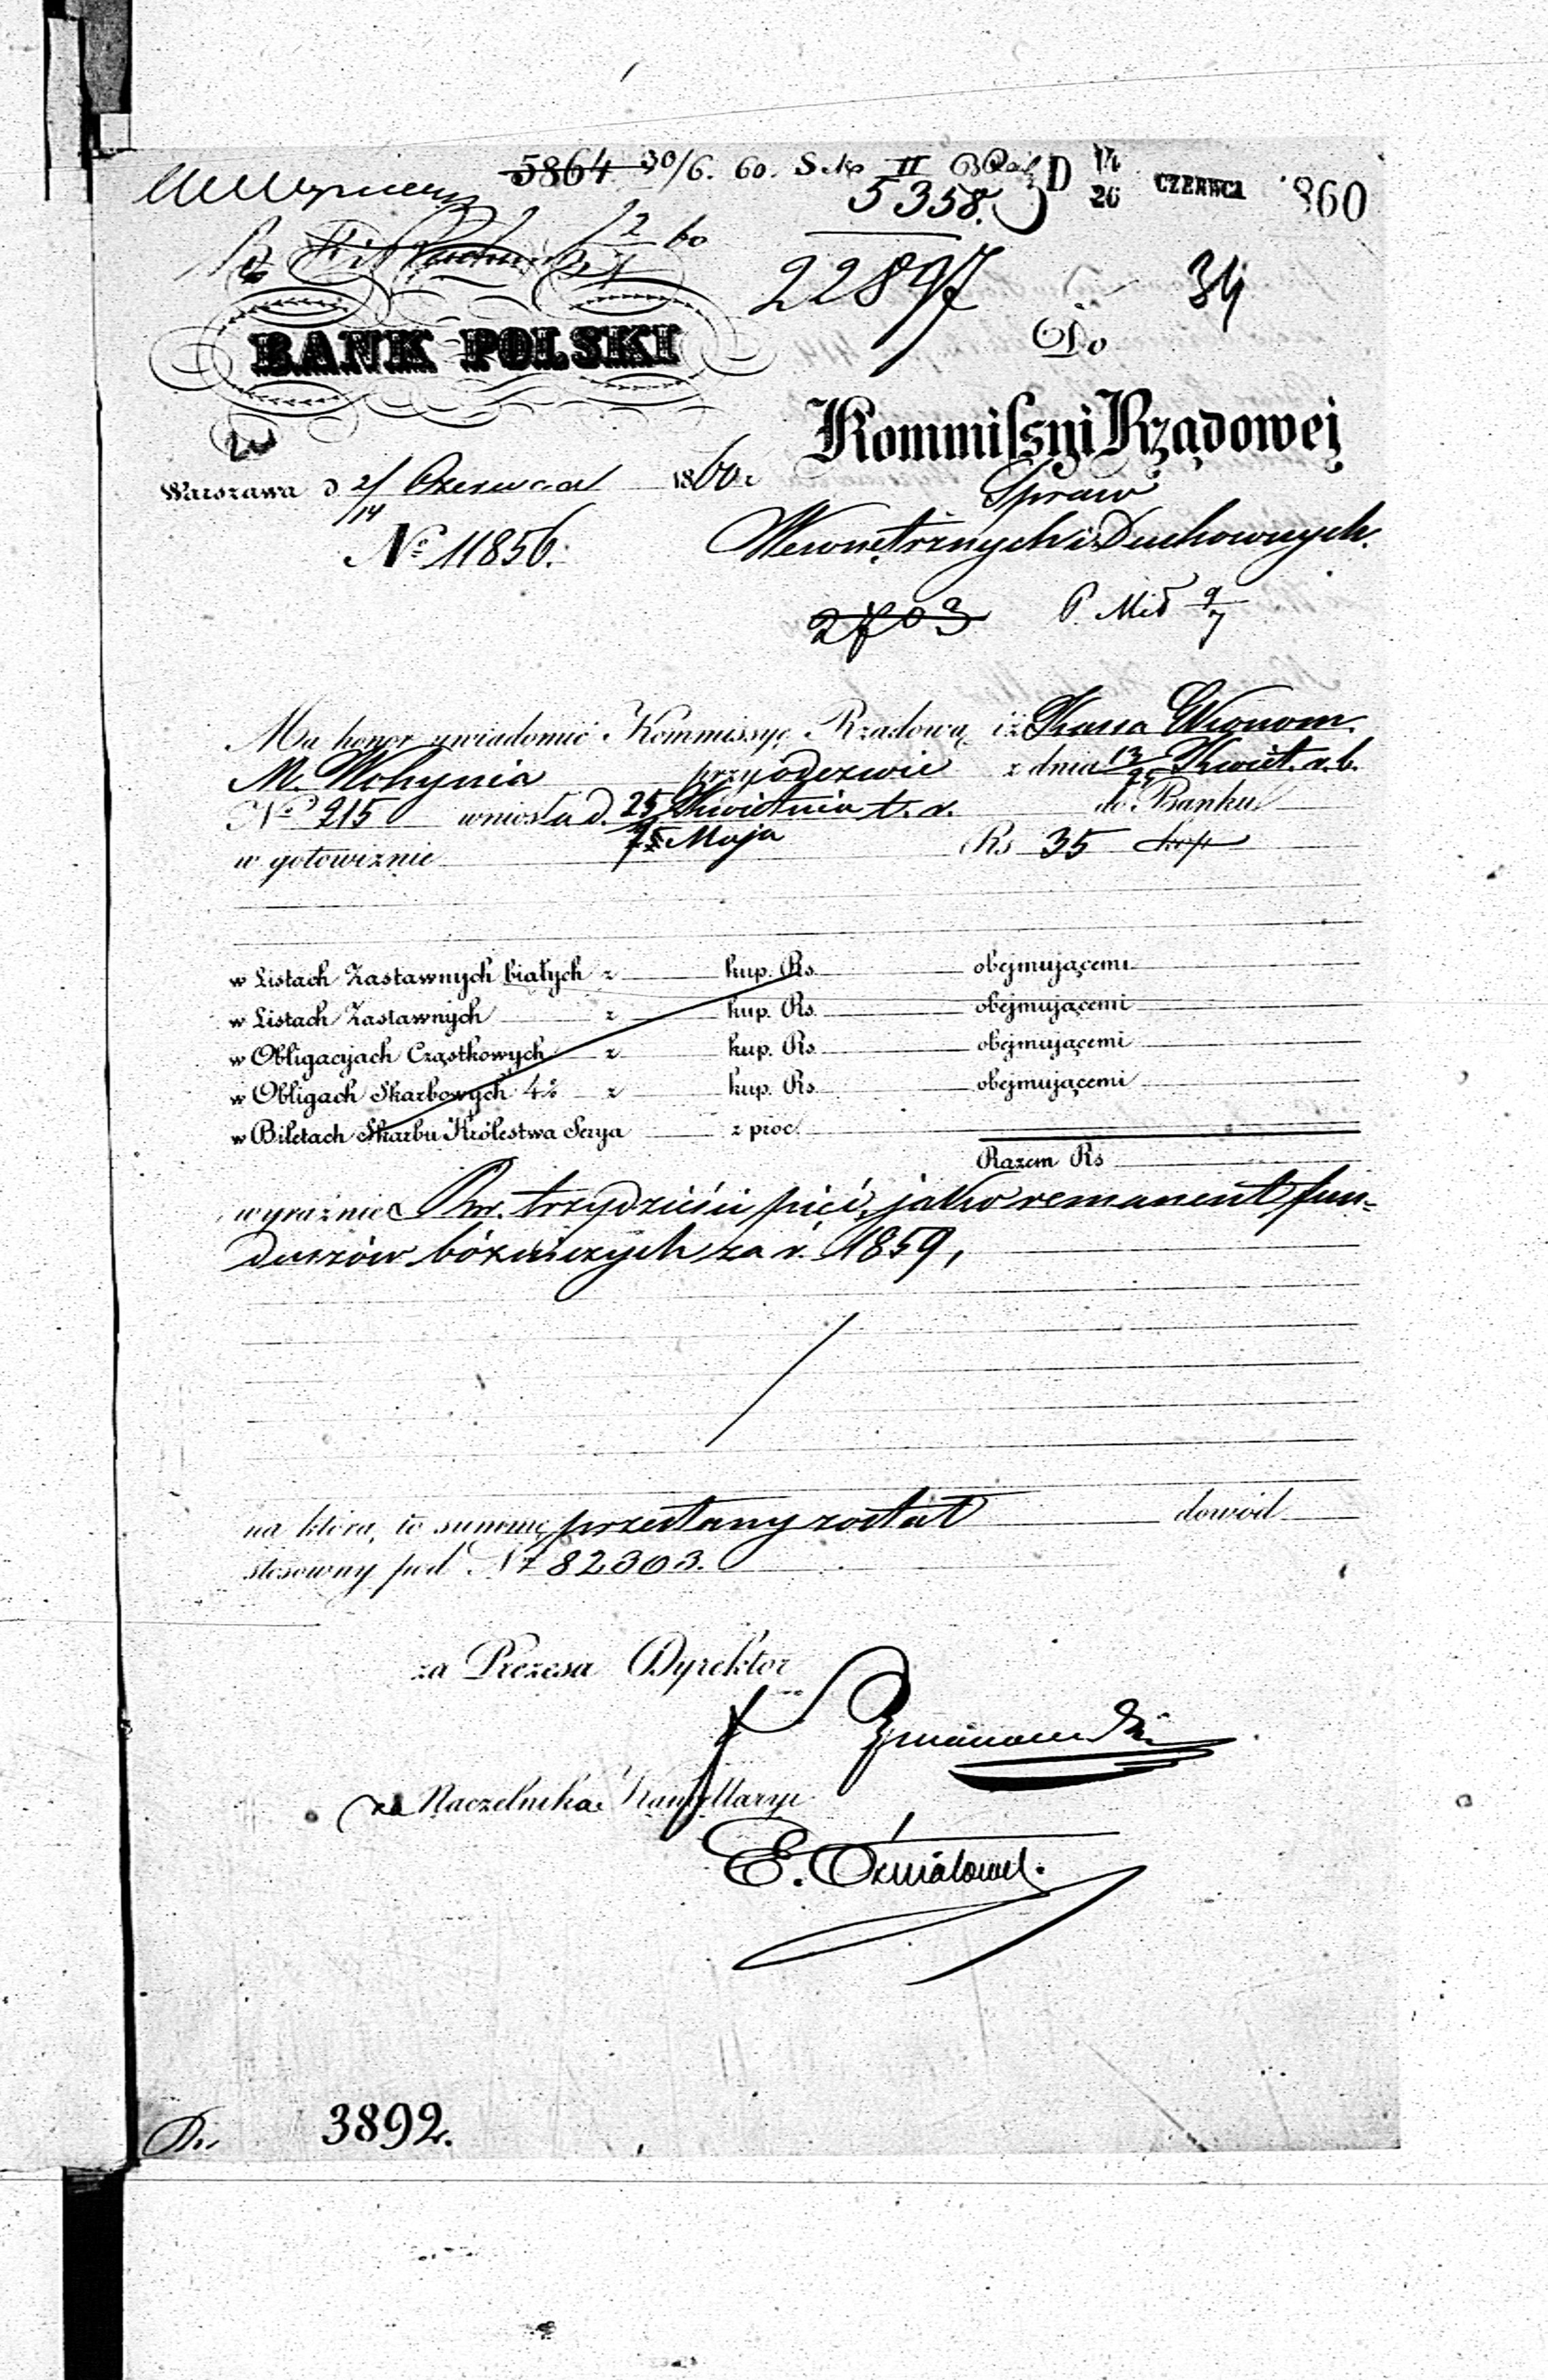 5864 30/6. 60. II D 14/26 CZERWCA 860
5358.
2/7 60
22897 34
BANK POLSKI
Do
Kommissyi Rządowej
Warszawa d 2/14 Czerwca 1860 r
Spraw
Nº 11856.
Wewnętrznych i Duchownych.
2703 9/7
Ma honor uwiadomić Kommissyę Rządową iż Kassa Ekonom.
M. Wohynia przy odezwie z dnia 13/25 Kwiet. r. b.
Nº 215 wniosła d. 25 Kwietnia t. r. do Banku
7 Maja
w gotowiznie Rs 35 kop
w Listach Zastawnych białych z kup. Rs obejmującemi
w Listach Zastawnych z kup. Rs obejmującemi
w Obligacyjach Cząstkowych z kup. Rs obejmującemi
w Obligach Skarbowych 4% z kup. Rs obejmującemi
w Biletach Skarbu Królestwa Serya z proc
Razem Rs
wyraźnie Rsr. trzydzieści pięć, jako remanent fun=
duszów bóżniczych za r. 1859,
na którą to summę przesłany został dowód
stosowny pod Nr 82303.
za Prezesa Dyrektor
za Naczelnika Kancellaryi
E.
3892.